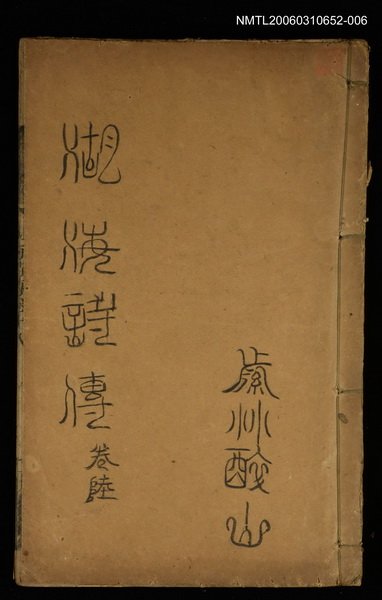 NMTL20060310652-006
州酸山
湖海詩傳 卷陸